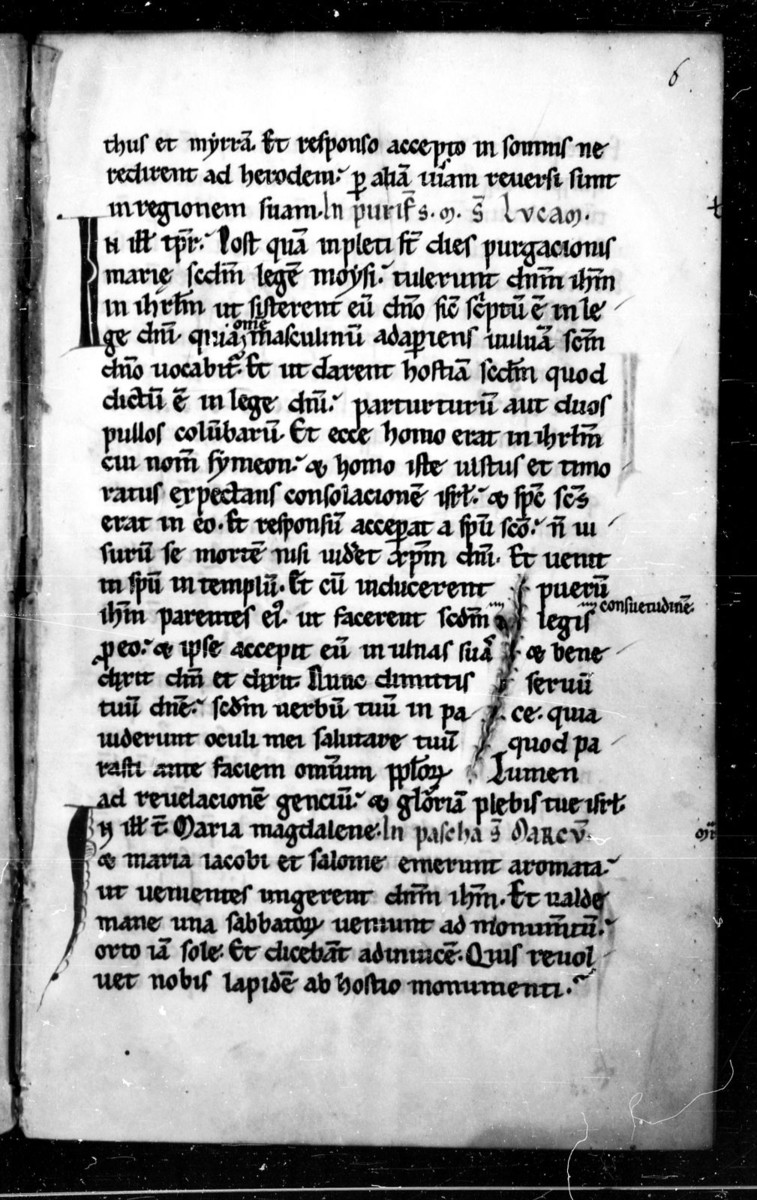 6
thus et mẏrrā. Et responso accepto in somnis ne
redirent ad herodem. ꝑ aliā uiam reuersi sunt
in regionem suam. In purif̄ s. m. s̄ lvcam.
In ill̄ tp̄r. Post quā inpleti st̄ dies purgacionis
marię scdm̄ legē moẏsi. tulerunt dn̄m ih̄m
in ihrl̄m ut sisterent eū dn̄o sic̄ sc̄ptū ē in le
ge dn̄i. quia om̄e masculinū adaperiens uuluā scm̄
dn̄o uocabit᷑. Et ut darent hostiā scdm̄ quod
dictū ē in lege dn̄i. par turturū aut duos
pullos colūbarū. Et ecce homo erat in ihrl̄m
cui nom̄ sẏmeon. & homo iste iustus et timo
ratus expectans consolacionē isrl̄. & sp̄c sc̄s
erat in eo. Et responsū acceperat a sp̄u sc̄o. n̄ ui
surū se mortē nisi uideret xp̄m dn̄i. Et uenit
in sp̄u in templū. Et cū inducerent puerū
ih̄m parentes ei᷒ ut facerent scdm̄ legis consuetudinē
ꝓ eo. & ipse accepit eū in ulnas suas & bene
dixit dm̄ et dixit Nunc dimittis seruū
tuū dn̄e. scdm̄ uerbū tuū in pa ce. quia
uiderunt oculi mei salutare tuū quod pa
rasti ante faciem omīum ppl̄oꝝ Lumen
ad reuelacionē genciū. & gloriā plebis tue isrl̄.
In ill̄ t̄ Maria magdalene. In pascha s̄ marcv̄.
& maria iacobi et salome emerunt aromata.
ut uenientes ungerent dn̄m ih̄m. Et ualde
mane una sabbatoꝝ ueniunt ad monum̄tū.
orto iā sole. Et dicebāt adinuicē. Quis reuol
uet nobis lapidē ab hostio monumenti.